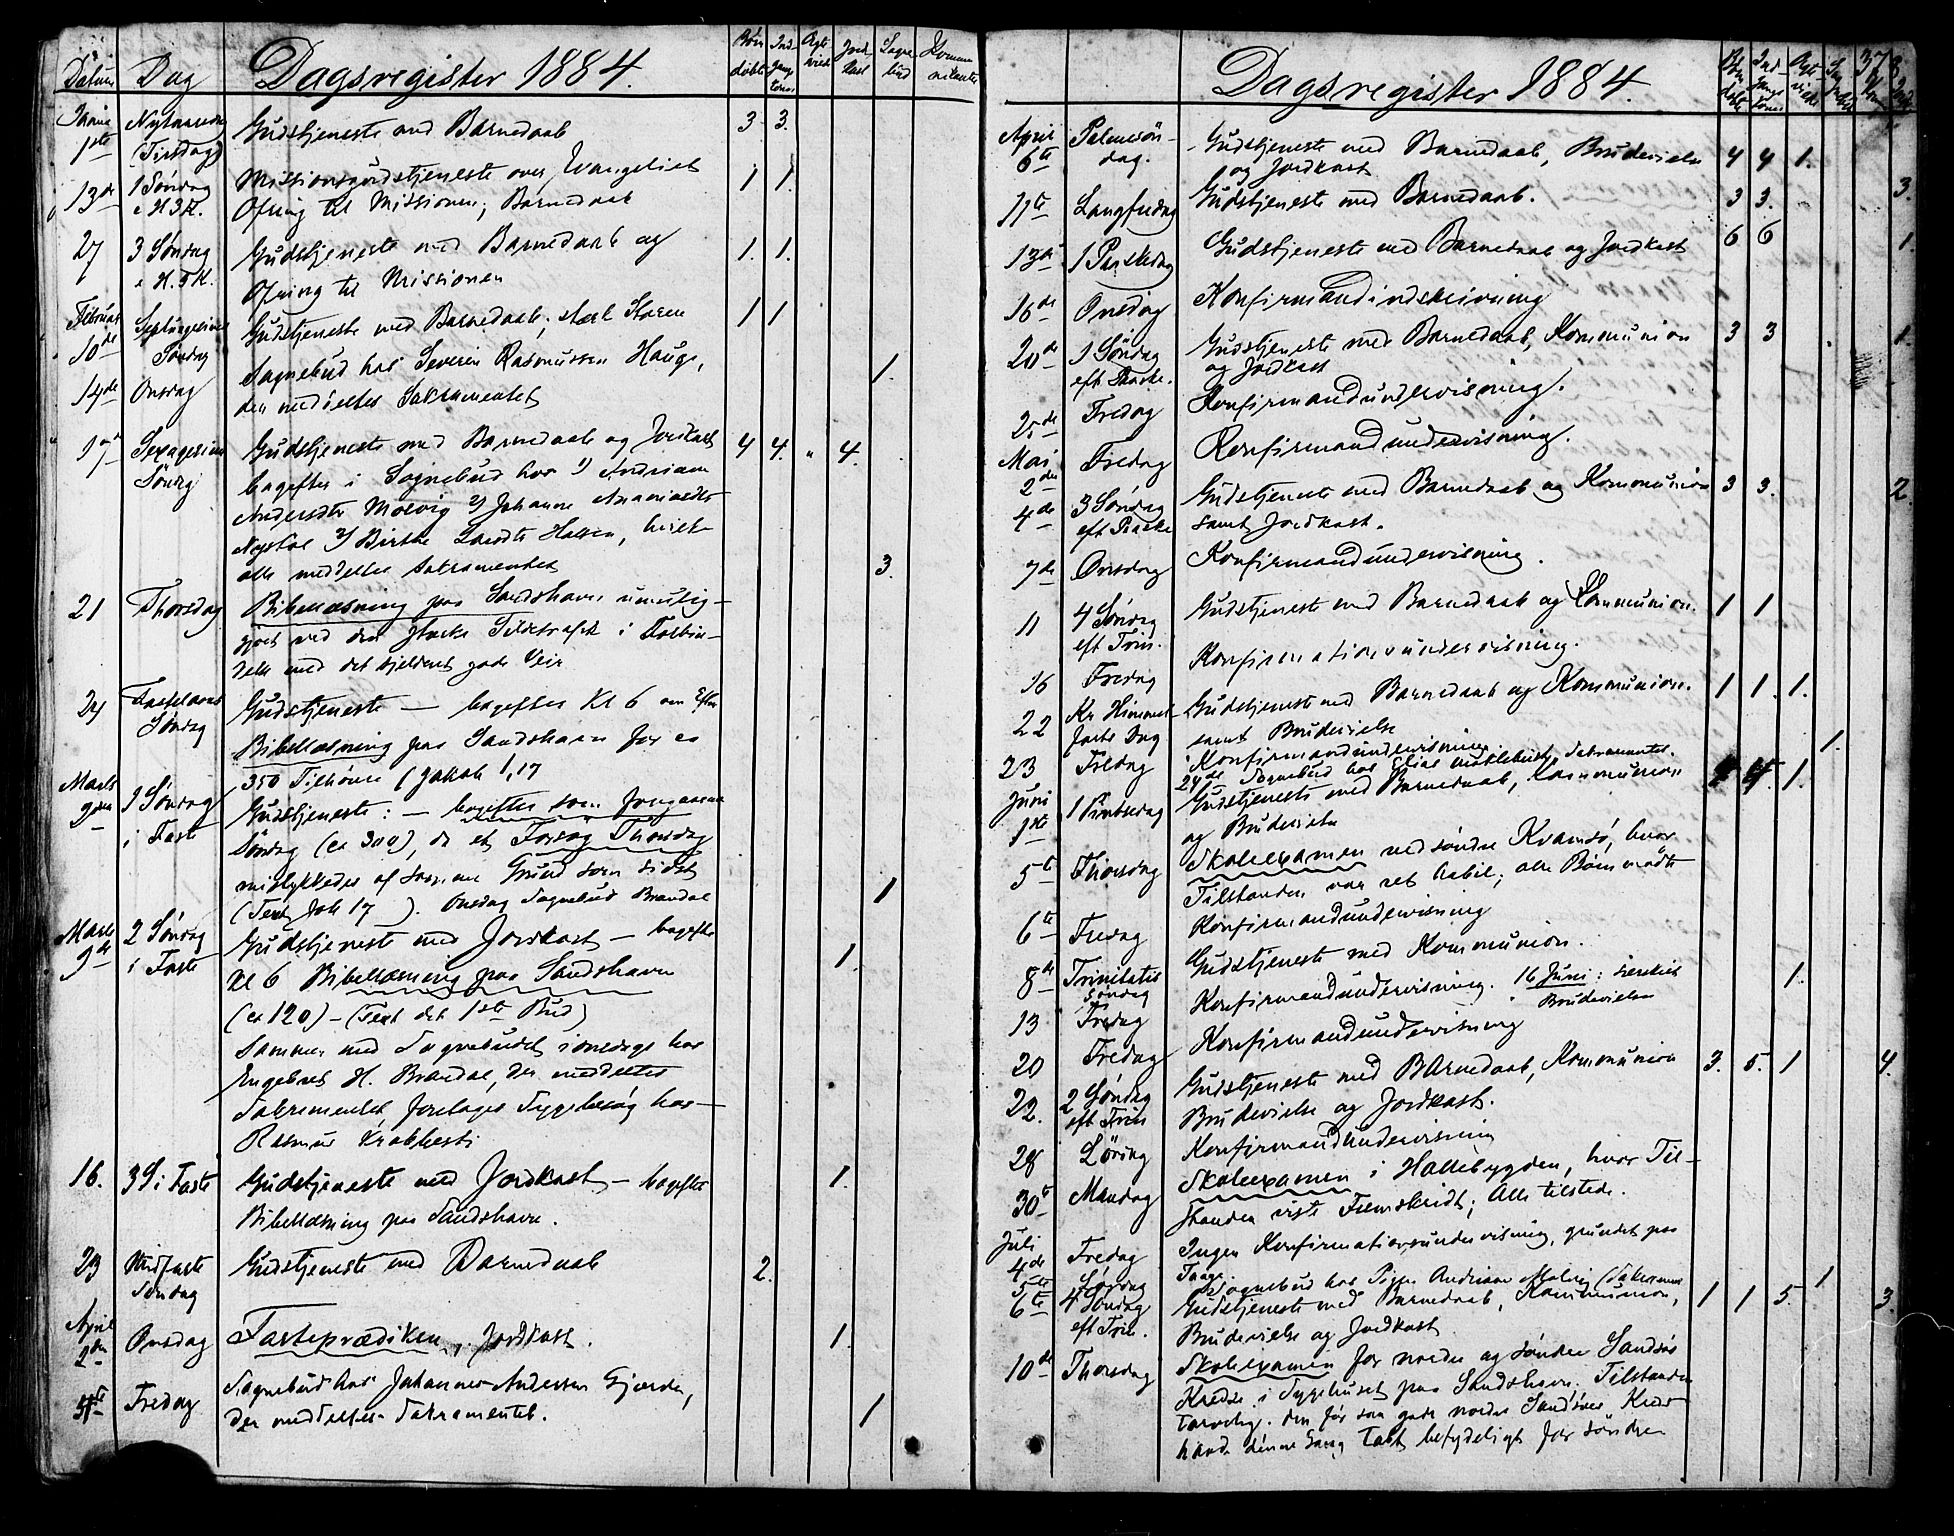 Datum Dag Dagsregister 1884. Børn døbte Introduktioner Ægteviede Jordkast Sognebud
1ste Nytaarsdag (Tirsdag) Gudstjeneste med Barnedaab 3 3.
13de 1 Søndag e H3K. Missionsgudstjeneste over Evangeliet 1 1.
Ofring til Missionen; Barnedaab
27 3 Søndag e H.3K. Gudstjeneste med Barnedaab og 1. 1.
Ofring til Missionen
Februar 10de Søndag Gudstjeneste med Barnedaab; stærk Storm 1 1
14de Onsdag Sognebud hos Severin Rasmussen Hauge, 1.
den meddeltes Sakramentet
17de Søndag Gudstjeneste med Barnedaab og Jordkast 4 4. " 4.
bagefter i Sognebud hos 1)
Molvig 2) Johanne
3)
alle meddeltes Sakramentet 3.
21 Thorsdag Bibellæsning paa Sandshavn umulig-
gjort ved den stærke i Forbin-
delse med det sjeldent gode Veir
24 Fastelavns Søndag Gudstjeneste — bagefter Kl 6 om Efter
Bibellæsning paa Sandshavn for ca
350 Tilhørere (Jakob 1,17
Marts 2den 1 Søndag i Faste Gudstjeneste: — bagefter som forgaaende
Søndag (ca 300), da et Forsøg Thorsdag
mislykkedes af samme Grund som sidst
(Text Joh 17 ). Onsdag Sognebud Brandal 1
Marts 9de 2 Søndag i Faste Gudstjeneste med Jordkast — bagefter 1.
Kl 6 Bibellæsning paa Sandshavn
(ca 120) — (Text det 1ste Bud)
Sammen med Sognebudet i onsdags hos
Engebret H. Brandal, der meddeltes
Sakramentet, foretages Sygebesøg hos —
Rasmus
16. 3 S i Faste Gudstjeneste med Jordkast — bagefter 1.
Bibellæsning paa Sandshavn.
23 Midfaste Søndag Gudstjeneste med Barnedaab 2.
April 2den Onsdag Fasteprædiken, Jordkast. 1
Fredag Sognebud hos Johannes Andersen Gjerde,
der meddeltes Sakramentet. 1
Dagsregister 1884. 378
April 6te Palmesøndag. Gudstjeneste med Barnedaab, Brudevielse 4 4 1.
og Jordkast 3.
11te Langfredag Gudstjeneste med Barnedaab. 3 3.
13de 1 Paaskedag Gudstjeneste med Barnedaab og Jordkast 6 6 1.
16de Onsdag Konfirmandindskrivning
20de 1 Søndag eft Paaske. Gudstjeneste med Barnedaab, Kommunion 3 3 1.
og Jordkast
25de Fredag Konfirmandundervisning.
Mai 2den Fredag Konfirmandundervisning.
4de 3 Søndag eft Paaske Gudstjeneste med Barnedaab og Kommunion 3 3. 2.
samt Jordkast.
7de Onsdag Konfirmandundervisning.
11 4 Søndag eft Trin. Gudstjeneste med Barnedaab og Kommunion. 1 1
16 Fredag Konfirmationsundervisning.
22 Kr Himmelfarts Dag Gudstjeneste med Barnedaab og Kommunion. 1 1. 1.
samt Brudevielse
23 Fredag Konfirmandundervisning
24de Sognebud hos Elias Sakramentet. 1.
Juni 1ste 1 Pintsedag Gudstjeneste med Barnedaab, Kommunion 4. 1.
og Brudevielse
5te Thorsdag Skoleexamen ved søndre Kvamsø, hvor
Tilstanden var ret habil; alle Børn mødte
6te Fredag Konfirmandundervisning
8de Trinitatis Søndag Gudstjeneste med Kommunion.
13 Fredag Konfirmandundervisning. 16 Juni: særskilt Brudevielse 1.
20 Fredag Konfirmandundervisning
22. 2 Søndag eft Trin Gudstjeneste med Barnedaab, Kommunion 3. 5. 1 4.
Brudevielse og Jordkast.
28 Lørdag Konfirmandundervisning
30te Mandag Skoleexamen i Hallebygden, hvor Til-
standen viste Fremskridt; Alle tilstede.
Juli 4de Fredag Ingen Konfirmationsundervisning, grundet paa
Taage.
5te Lørdag Sognebud hos Pigen Andrine Molvig (Sakrament 1
6te 4 Søndag eft Trin. Gudstjeneste med Barnedaab, Kommunion, 1 1 5. 3.
Brudevielse og Jordkast
10de Thorsdag Skoleexamen for nordre og søndre Sandsø
Kredse i Sygehuset paa Sandshavn. Tilstanden
tarvelig. den før saa gode nordre Sandsøes Kreds
havde denne Gang tabt betydeligt for søndre